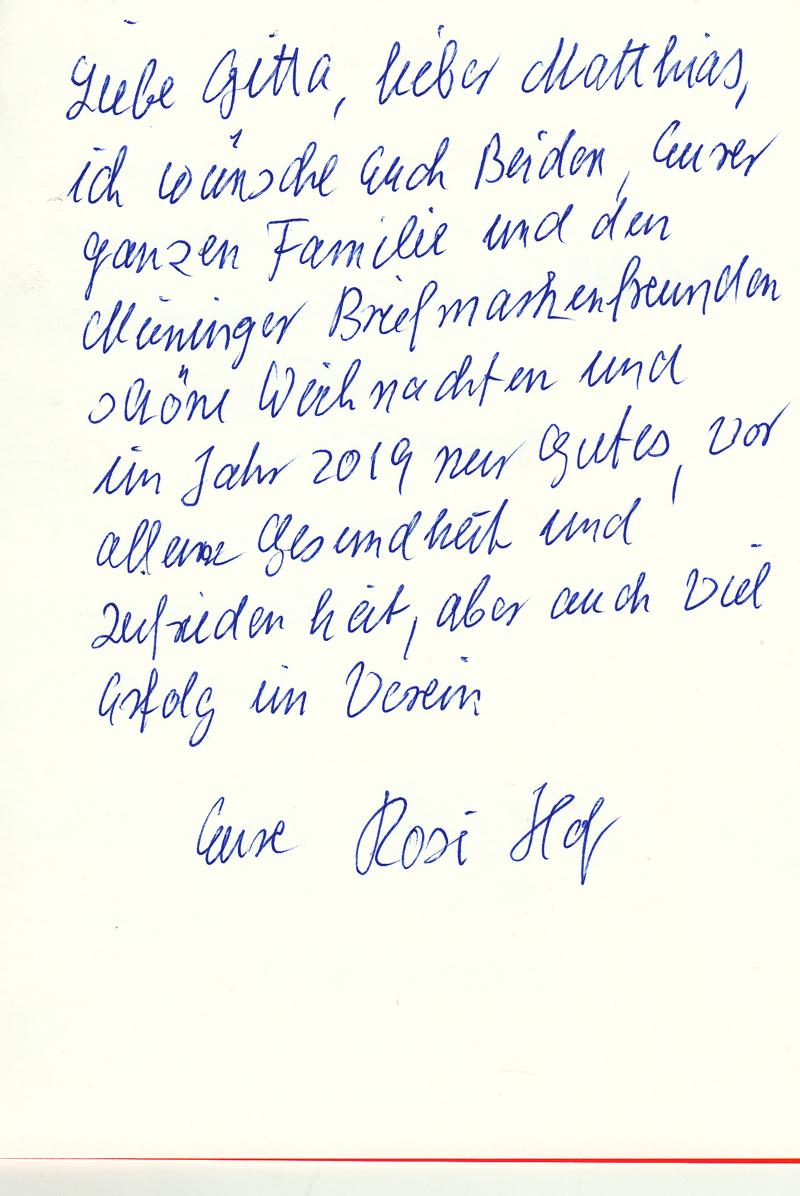 Liebe Gitta, lieber Matthias,
ich wünsche Euch Beiden, Eurer
ganzen Familie und den
Meininger Briefmarkenfreunden
schöne Weihnachten und
im Jahr 2019 nur Gutes, vor
allem Gesundheit und
Zufriedenheit, aber auch viel
Erfolg im Verein
Eure Rosi Hof